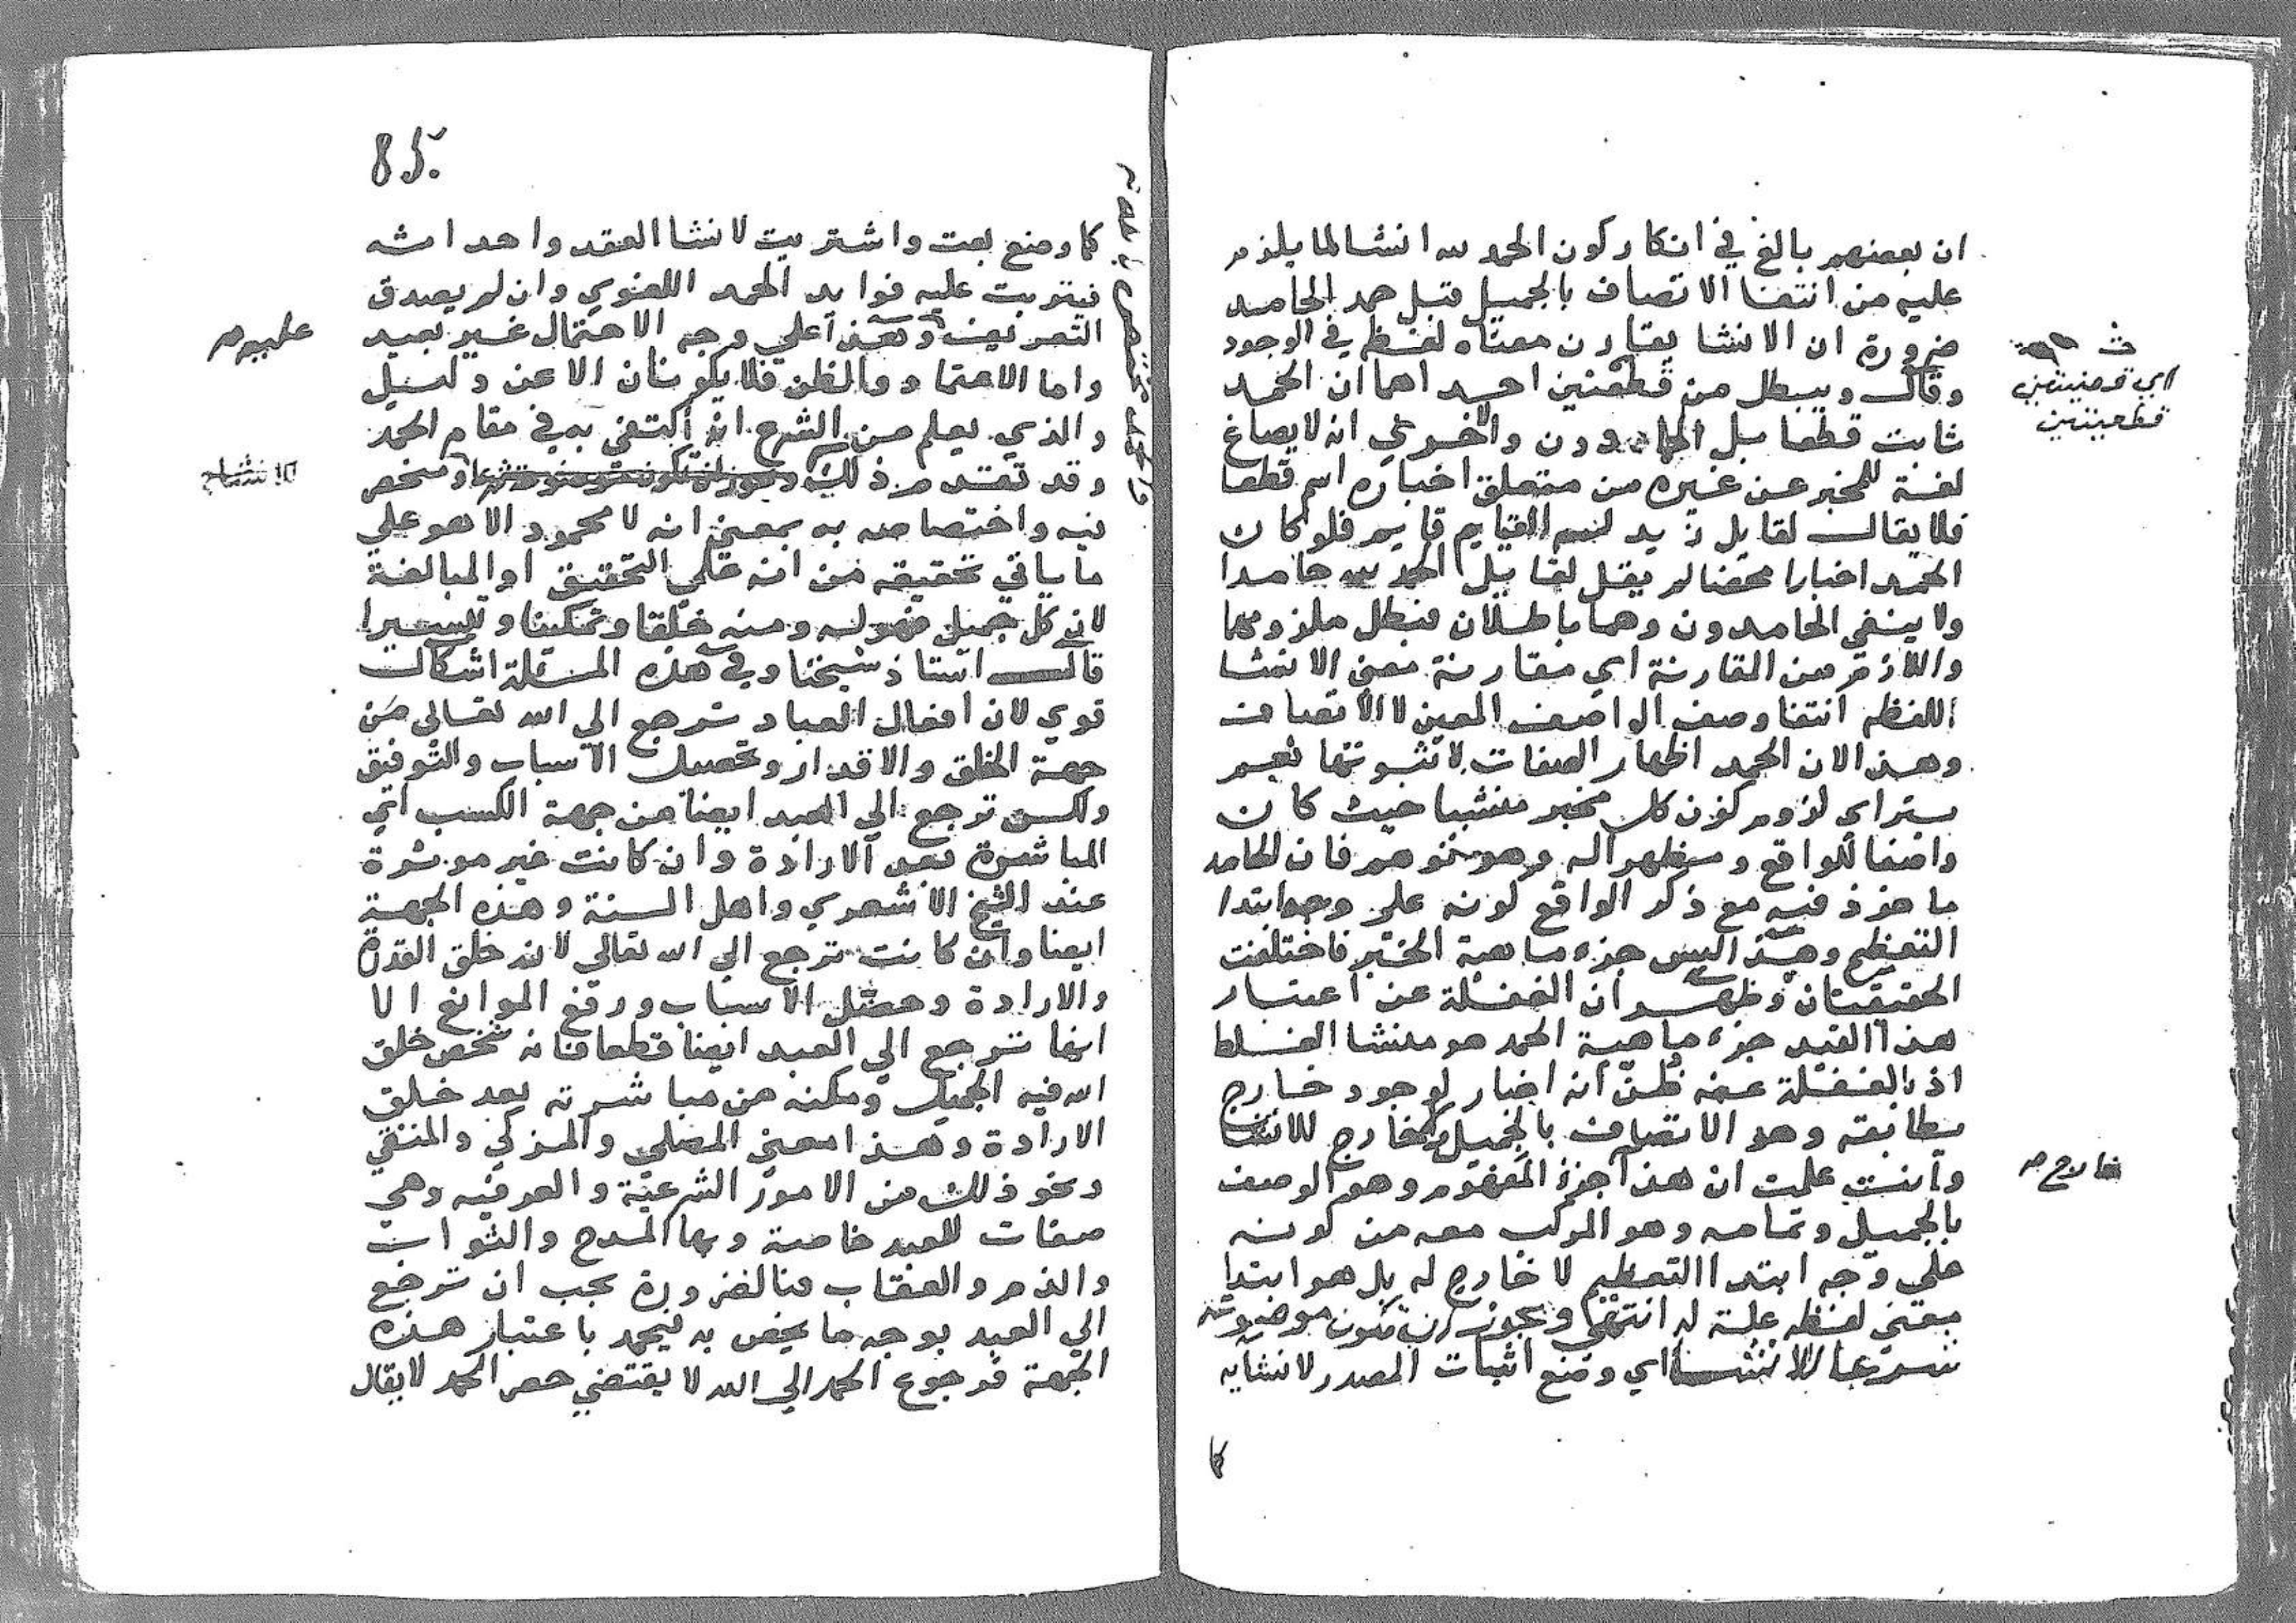 ان بعضهم بالغ في انكار كون الحمد لله انشا لما يلزم
عليه من انتفا الاتصاف بالجميل قبل حمد الحامد
ضرورة ان الانشا يقارن معناه لفظه في الوجود
وقال ويبطل من قطعتين احداهما ان الحمد
ثابت قطعا بل الحمادون والاخري انه لا يصاغ
لغة للمخبر عن غيره من متعلق اخباره اسم قطعا
فلا يقال لقايل زيد له القيام قايم فلو كان
الحمد اخبارا محضا لم يقل لقايل الحمد لله حامدا
ولا ينفي الحامدون وهما باطلان فبطل ملزومهما
واللازم من المقارنة اي مقارنة معني الانشا
اللفظ انتفا وصف الواصف المعين لا الاتصاف
وهذا لان الحمد اظهار الصفات لا ثبوتها نعم
يتراي لزوم كون كل مخبر منشيا حيث كان
واصفا للواقع ومظهرا له وهو توهم فان الحامد
ماخوذ فيه مع ذكر الواقع كونه علي وجه ابتدا
التعظيم وهذا ليس جزء ماهية الخبر فاختلفت
الحقيقتان وظهر ان الغفلة عن اعتبار
هذا القيد جزء ماهية الحمد هو منشا الغلط
اذ بالغفلة عنه ظن انه اخبار لوجود خارج
يطابقه وهو الاتصاف بالجميل ولا خارج للانشا
وانت علمت ان هذا جزء المفهوم وهو الوصف
بالجميل وتمامه وهو المركب معه من كونه
علي وجه ابتدا التعظيم لا خارج له بل هو ابتدا
معني لفظه علة له انتهي ويجوز ان تكون موضوعة
شرعا للانشا اي وضع اثبات المصدر لانشايه
كما
اي قرضيتين
قطعيتين
خارج صح
85
كما وضع بعت واشتريت لانشا العقد واحداثه
فيترتب عليه فوايد الحمد اللغوي وان لم يصدق
التعريف وهذا علي وجه الاحتمال غير بعيد
واما الاعتماد والظن فلا يكونان الا عن دليل
والذي يعلم من الشرع انه اكتفي به في مقام الحمد
وقد تقدم ذلك
به واختصاصه به بمعني انه لا محمود الا هو علي
ما ياتي تحقيقه من انه علي التحقيق او المبالغة
لان كل جميل فهو له ومنه خلقا وتمكينا وتيسيرا
قال استاذ شيخنا وفي هذه المسئلة اشكال
قوي لان افعال العباد ترجع الي الله تعالي من
جهة الخلق والاقدار وتحصيل الاسباب والتوفيق
ولكن ترجع الي العبد ايضا من جهة الكسب اي
المباشرة بعد الارادة وان كانت غير موثرة
عند الشيخ الاشعري واهل السنة وهذه الجهة
ايضا وان كانت ترجع الي الله تعالي لانه خلق القدرة
والارادة وحصل الاسباب ورفع الموانع الا
انها ترجع الي العبد ايضا قطعا فانه شخص خلق
الله فيه الجميل ومكنه من مباشرته بعد خلق
الارادة وهذا معني المصلي والمزكي والمتقي
ونحو ذلك من الامور الشرعية والعرفيه وهي
صفات للعبد خاصة وبها المدح والثواب
والذم والعقاب فبالضرورة يجب ان ترجع
الي العبد بوجه ما يخص به فيحمد باعتبار هذه
الجهة فرجوع الحمد الي الله لا يقتضي حصر الحمد لا يقال
عليه صح